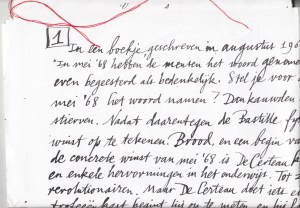 1
In een boekje geschreven in augustus 196
"In mei '68 hebben de mensen het woord genome
even begeesterd als bedenkelijk. Stel je voor
mei '68 het woord namen? Dan kauwden
stierven. Nadat daarentegen de Bastille
winst op te tekenen. Brood, en een begin va
de concrete winst van mei '68 is De Certeau
en enkele hervormingen in het onderwijs. Tot
revolutionairen. Maar De Certeau doet iets
begint hij op te